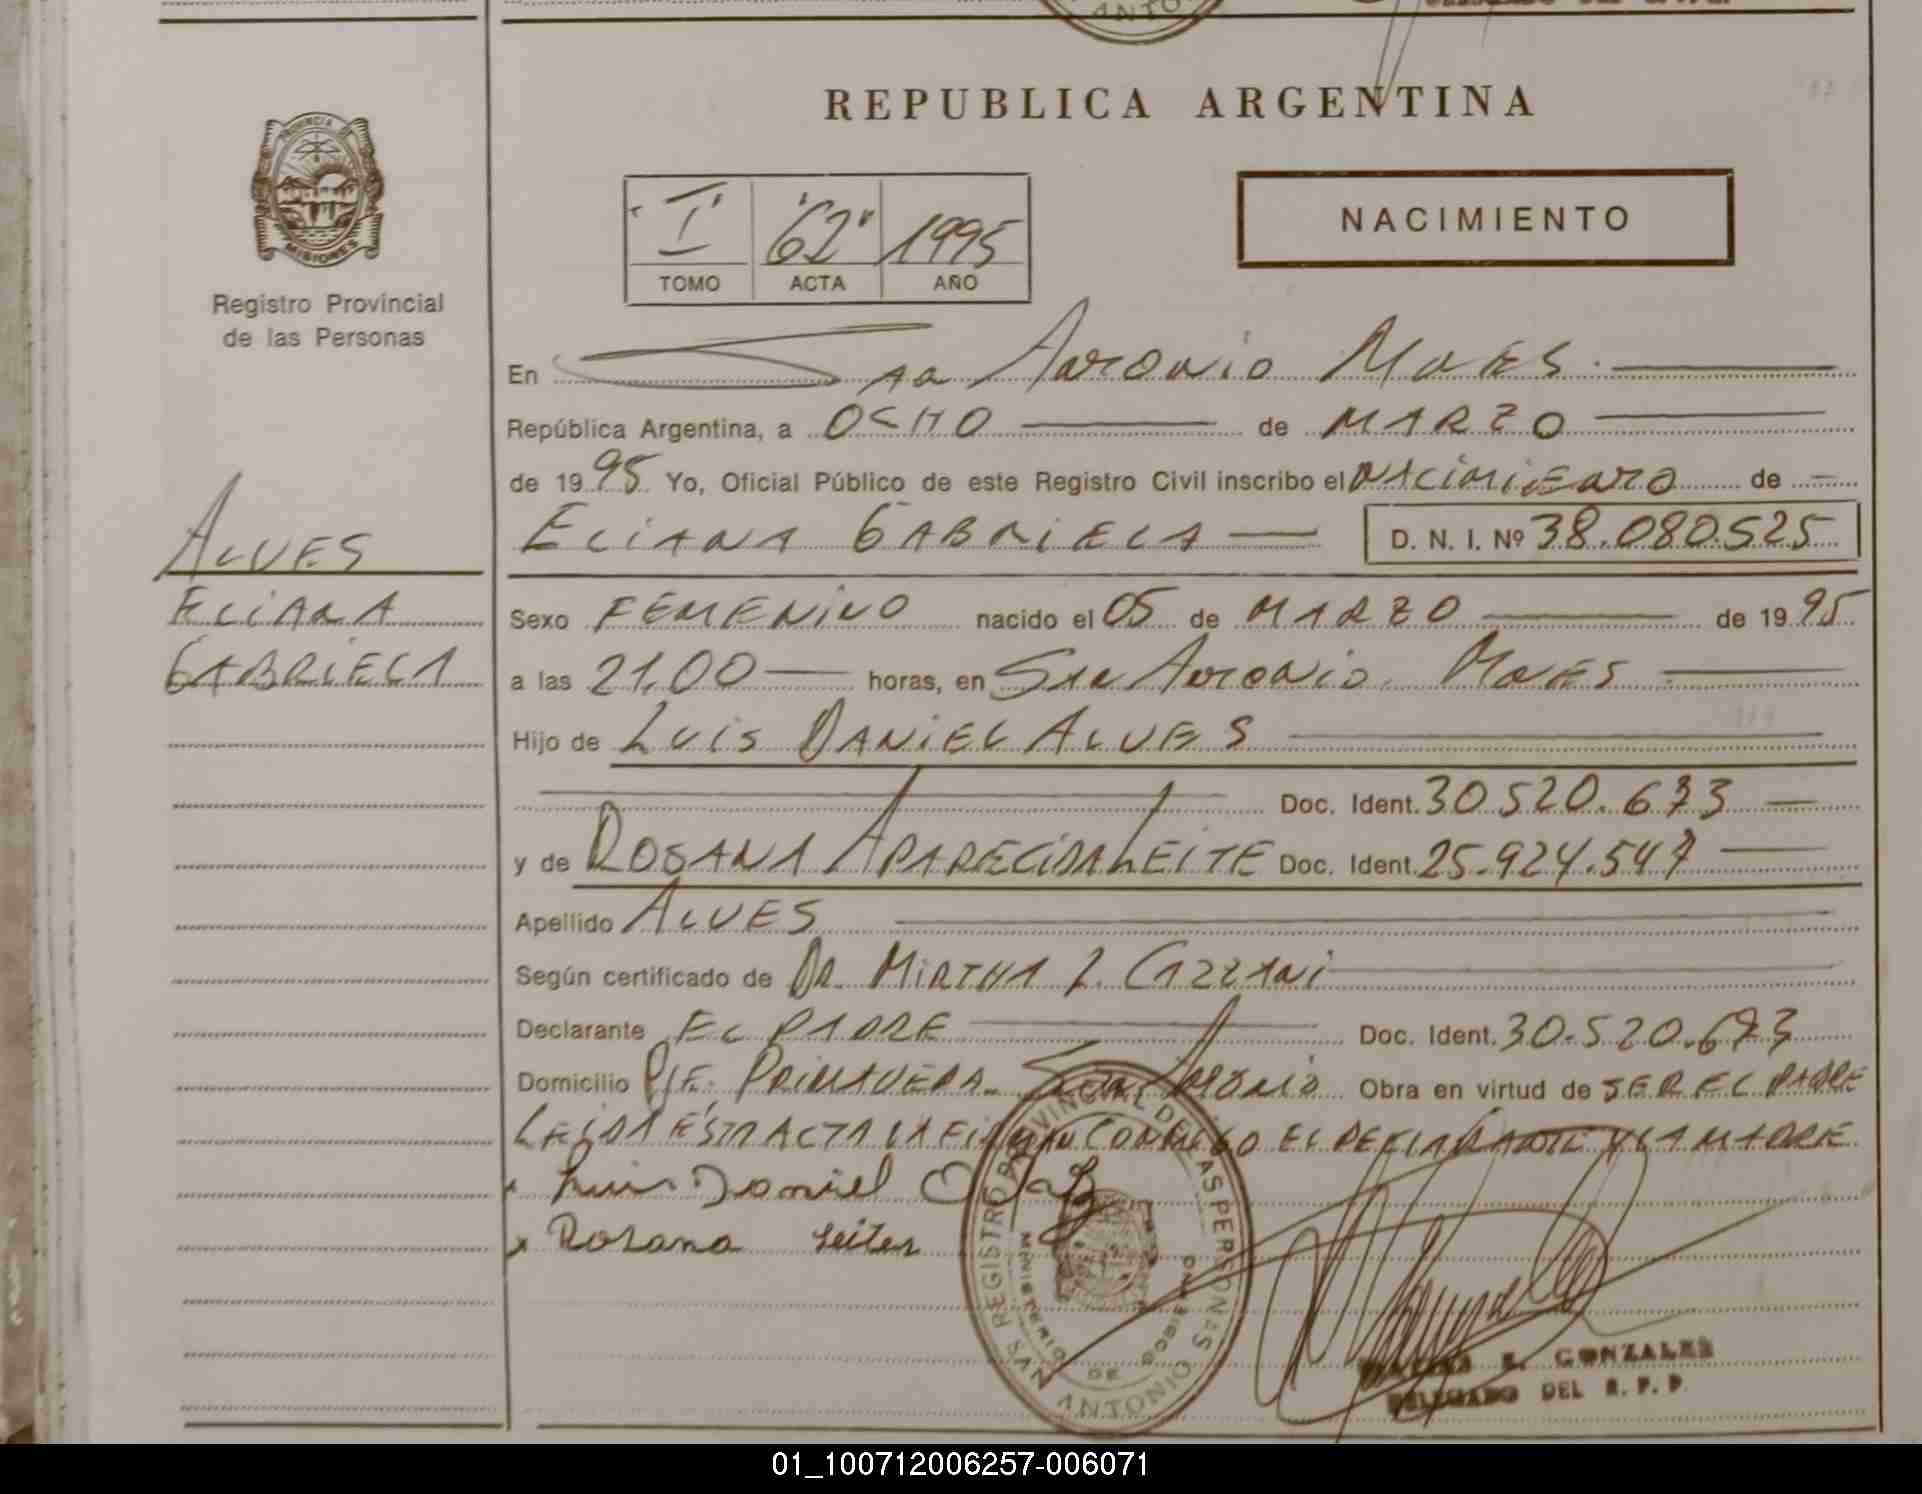 REPUBLICA ARGENTINA
PROVINCIA DE
MISIONES
Registro Provincial
de las Personas
"I" "62" 1995
TOMO ACTA AÑO
NACIMIENTO
En San Antonio Mnes.
República Argentina, a OCHO de MARZO
de 1995 Yo, Oficial Público de este Registro Civil inscribo el NACIMIENTO de
ELIANA GABRIELA D. N. I. Nº 38.080.525
ALVES
ELIANA
GABRIELA
Sexo FEMENINO nacido el 05 de MARZO de 1995
a las 21,00 horas, en San Antonio. Mnes
Hijo de LUIS DANIEL ALVES
Doc. Ident. 30520.673
y de ROSANA APARECIDA LEITE Doc. Ident. 25.924.547
Apellido ALVES
Según certificado de DR. MIRTHA L. CAZZANI
Declarante EL PADRE Doc. Ident. 30.520.673
Domicilio PJE. PRIMAVERA. San Antonio Obra en virtud de SER EL PADRE
LEIDA ESTA ACTA LA FIRMAN CONMIGO EL DECLARANTE Y LA MADRE.
Luis Daniel
Rosana Leites
REGISTRO PROVINCIAL DE LAS PERSONAS
MINISTERIO DE GOBIERNO
SAN ANTONIO
E. GONZALES
DELEGADO DEL R. P. P.
01_100712006257-006071